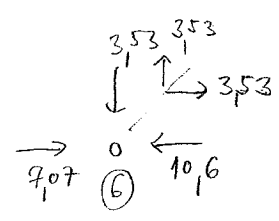 3,53 3,53
3,53
0
7,07 10,6
6